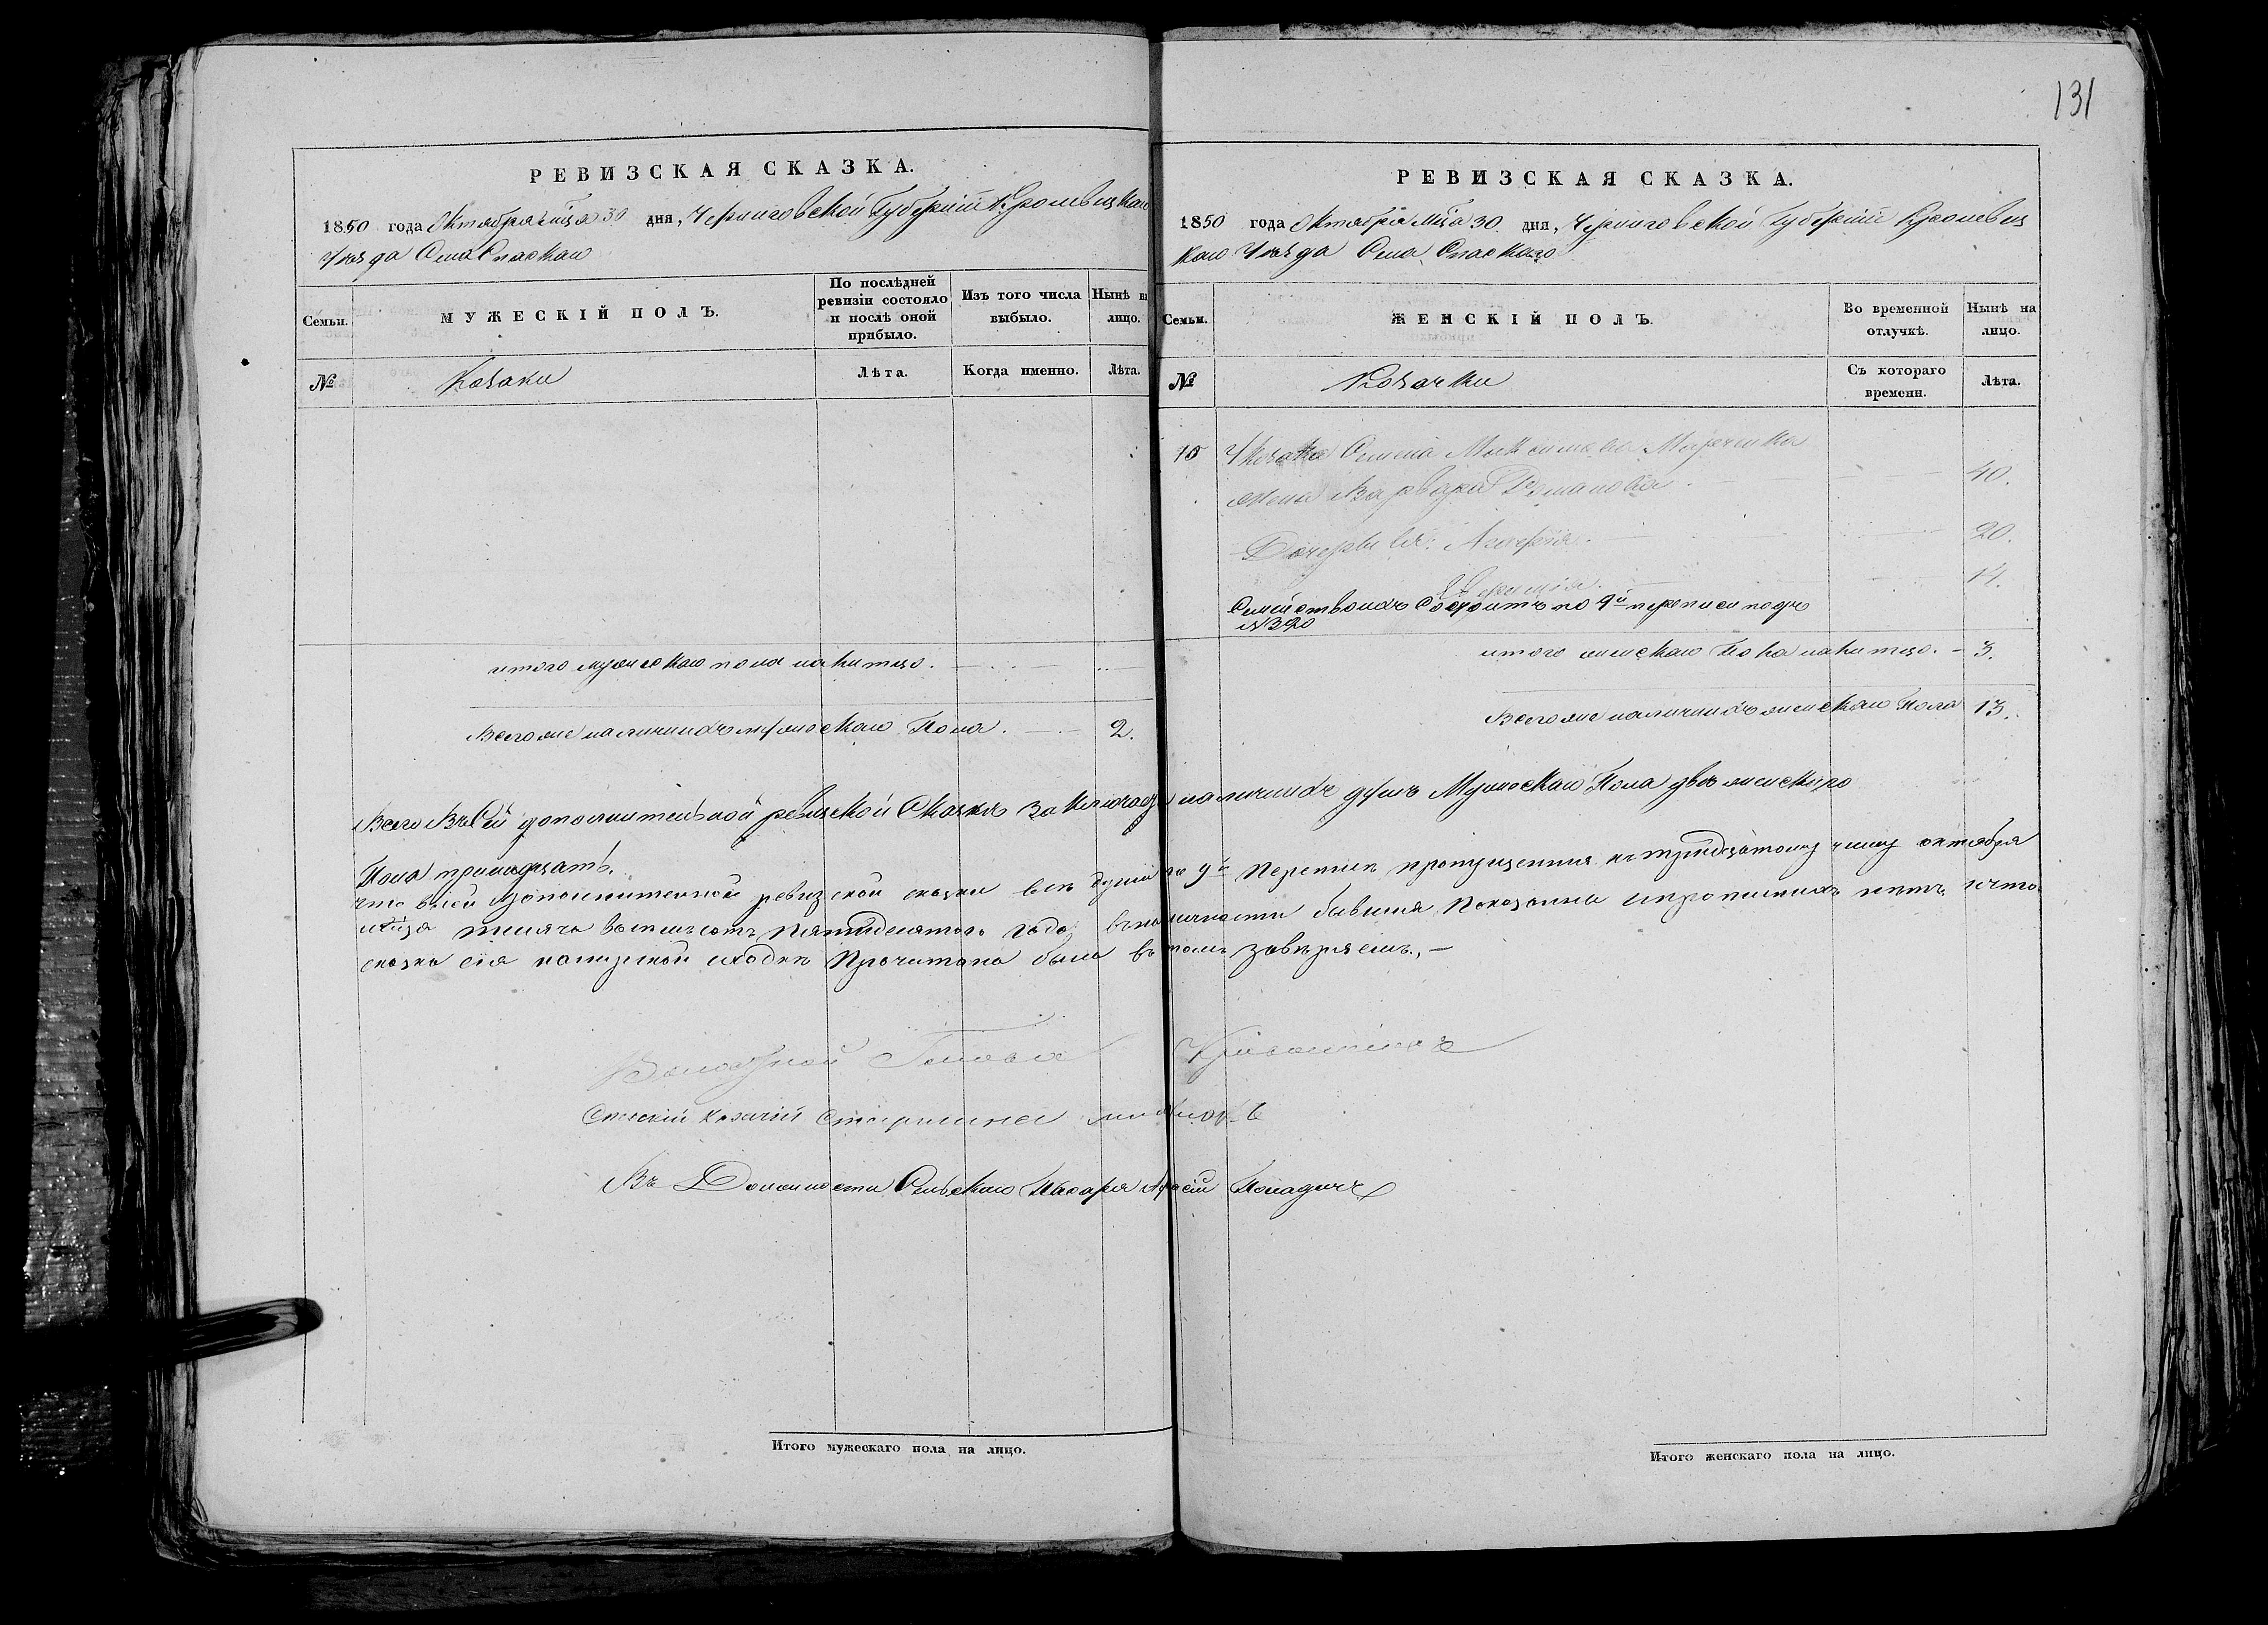 131
РЕВИЗСКАЯ СКАЗКА.
1850 года Октября мца 30 дня, Черниговской Губернiи Кролевецкаго
Уѣзда Села Спаскаго
Семьи. МУЖЕСКIЙ ПОЛЪ. По послѣдней ревизiи состояло и послѣ оной прибыло. Изъ того числа выбыло. Нынѣ на лицо.
№ Козаки Лѣта. Когда именно. Лѣта.
итого мужескаго пола налицо.
Всего же наличныхъ мужескаго Пола. 2.
РЕВИЗСКАЯ СКАЗКА.
1850 года Октября мца 30 дня, Черниговской Губернiи Кролевец
каго Уѣзда Села Спаскаго
Семьи. ЖЕНСКIЙ ПОЛЪ. Во временной отлучкѣ. Нынѣ на лицо.
№ Козачки Съ котораго времени. Лѣта.
10 У козака Семена Максимова
жена Варвара Романова 40.
Дочери 20.
Семейство ихъ состоитъ по 9й переписи подъ
итого женскаго Пола налицо. 3.
Всего же наличныхъ женскаго Пола 13.
Всего въ сей дополнительной ревизской Сказкѣ заключается наличныхъ душъ Мужескаго Пола двѣ женскаго
Пола тринадцать.
что в сей дополнительной ревизской сказки всѣ души по 9й Переписи пропущенныя къ тридцатому числу октября
мѣсяца тысяча восемьсотъ пятидесятого года въ наличности бывшiя Показаны и прописныхъ нѣтъ, и что
сказка сiя на мирской сходкѣ Прочитана была въ томъ завѣряемъ,
Волостной Голова
Спаскiй козачiй старшина
Въ Должности Сельскаго Писаря
Итого мужескаго пола на лицо.
Итого женскаго пола на лицо.